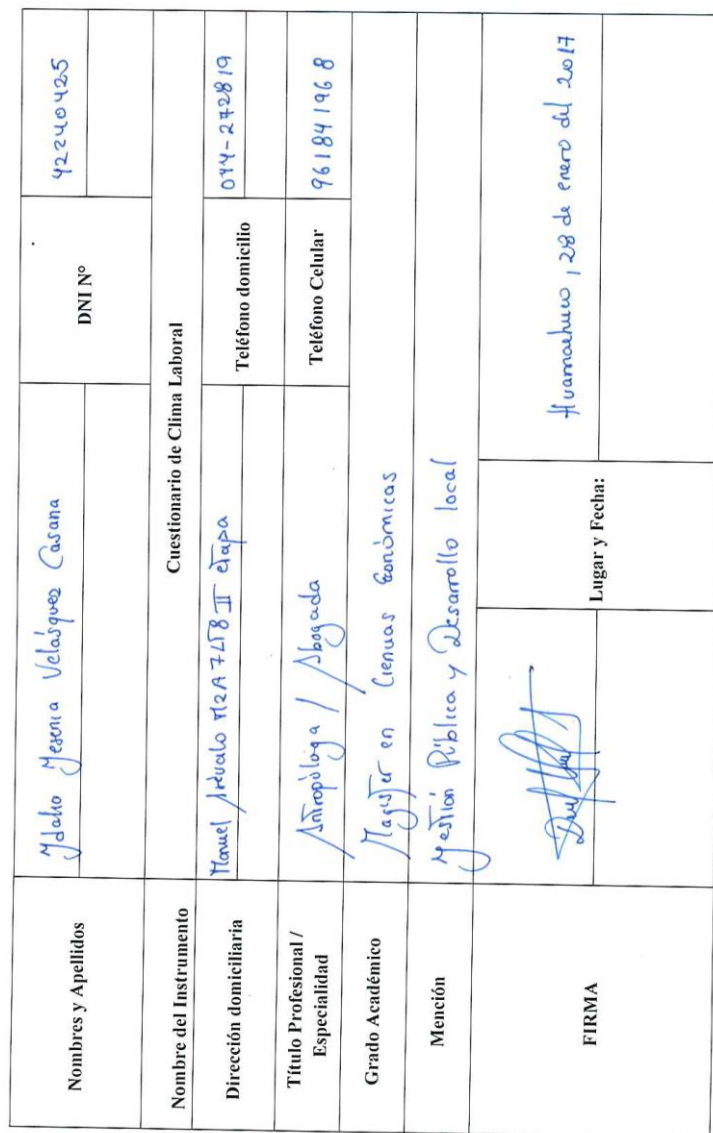 Nombres y Apellidos Ydalio Yesenia Velásquez Casana DNI Nº 42240425
Nombre del Instrumento Cuestionario de Clima Laboral
Dirección domiciliaria Manuel Arévalo Mz A7 Lt 8 II etapa Teléfono domicilio 044-272819
Título Profesional /
Especialidad Antropóloga / Abogada Teléfono Celular 961841968
Grado Académico Magister en Ciencias Económicas
Mención Gestión Pública y Desarrollo local
FIRMA Lugar y Fecha: Huamachuco, 28 de enero del 2017